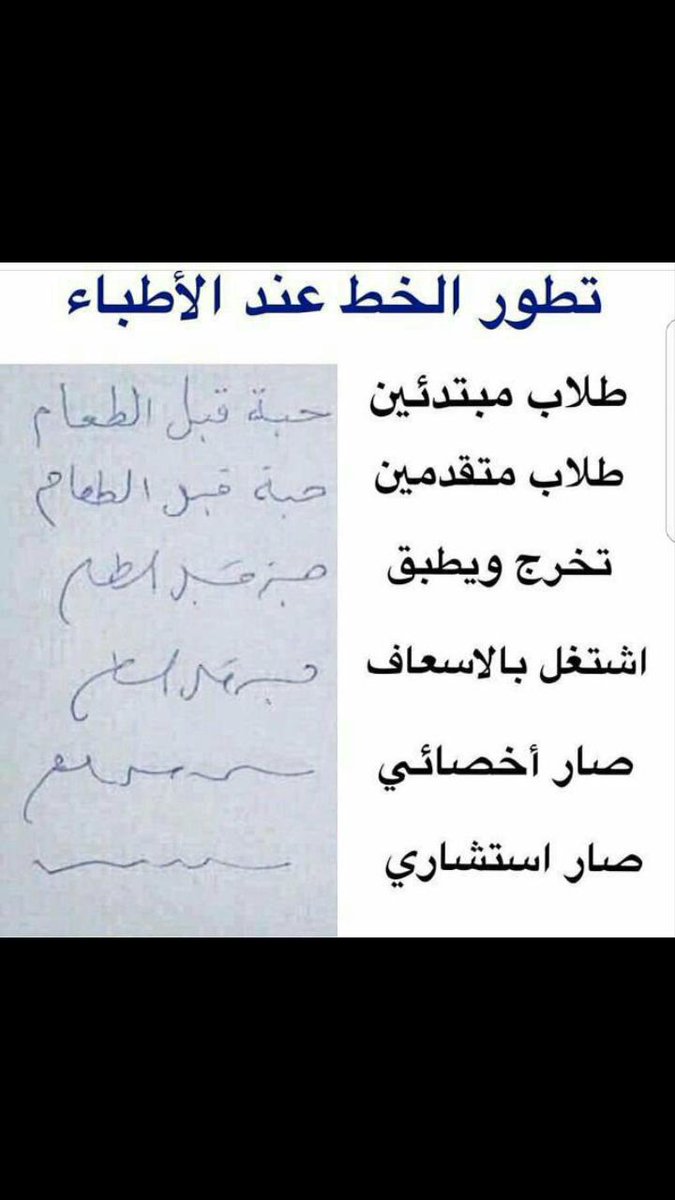 تطور الخط عند الأطباء
طلاب مبتدئين
حبة قبل الطعام
طلاب متقدمين
حبة قبل الطعام
تخرج ويطبق
اشتغل بالاسعاف
صار أخصائي
صار استشاري